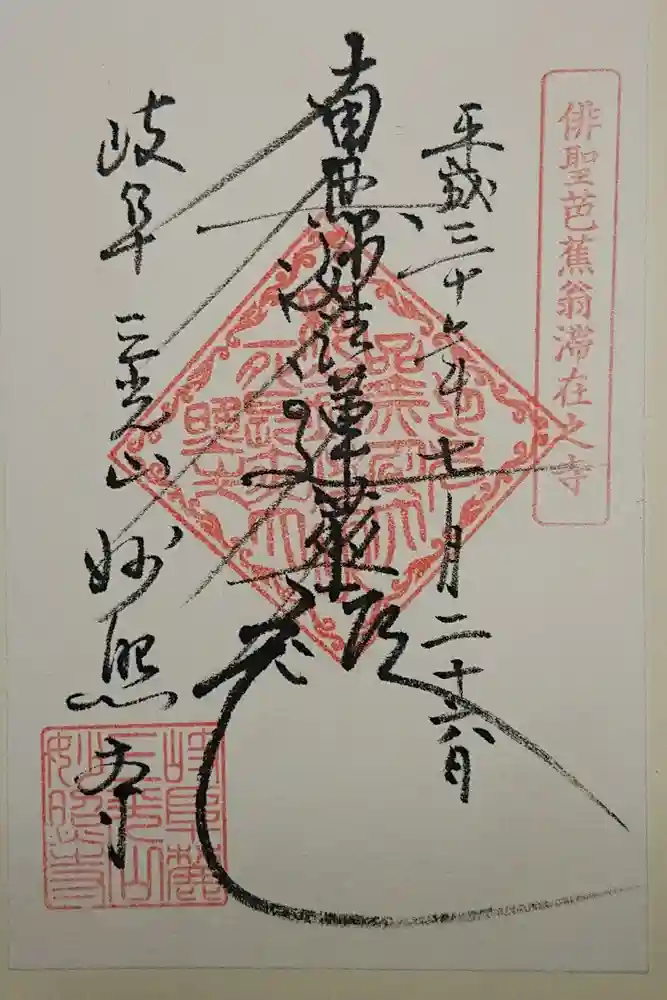 俳聖芭蕉翁滞在之寺
平成二十六年七月二十六日
南無妙法蓮華経
岐阜 三光山 妙照寺
三光山
妙照寺